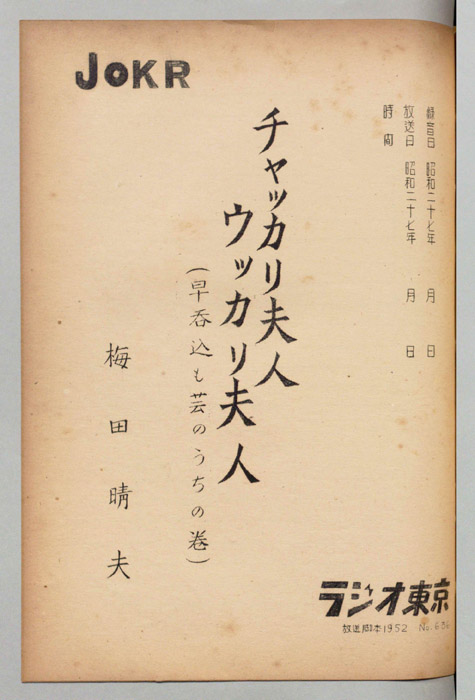 JOKR
録音日 昭和二十七年 月 日
放送日 昭和二十七年 月 日
時間
チャッカリ夫人
ウッカリ夫人
(早呑込も芸のうちの巻)
梅田晴夫
ラジオ東京
放送脚本1952 No.